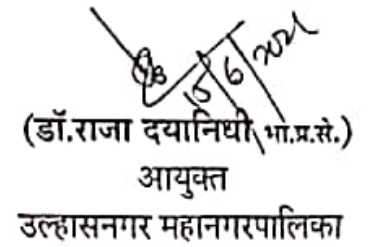 (डॉ.राजा दयानिधी भा.प्र.से.)
आयुक्त
उल्हासनगर महानगरपालिका